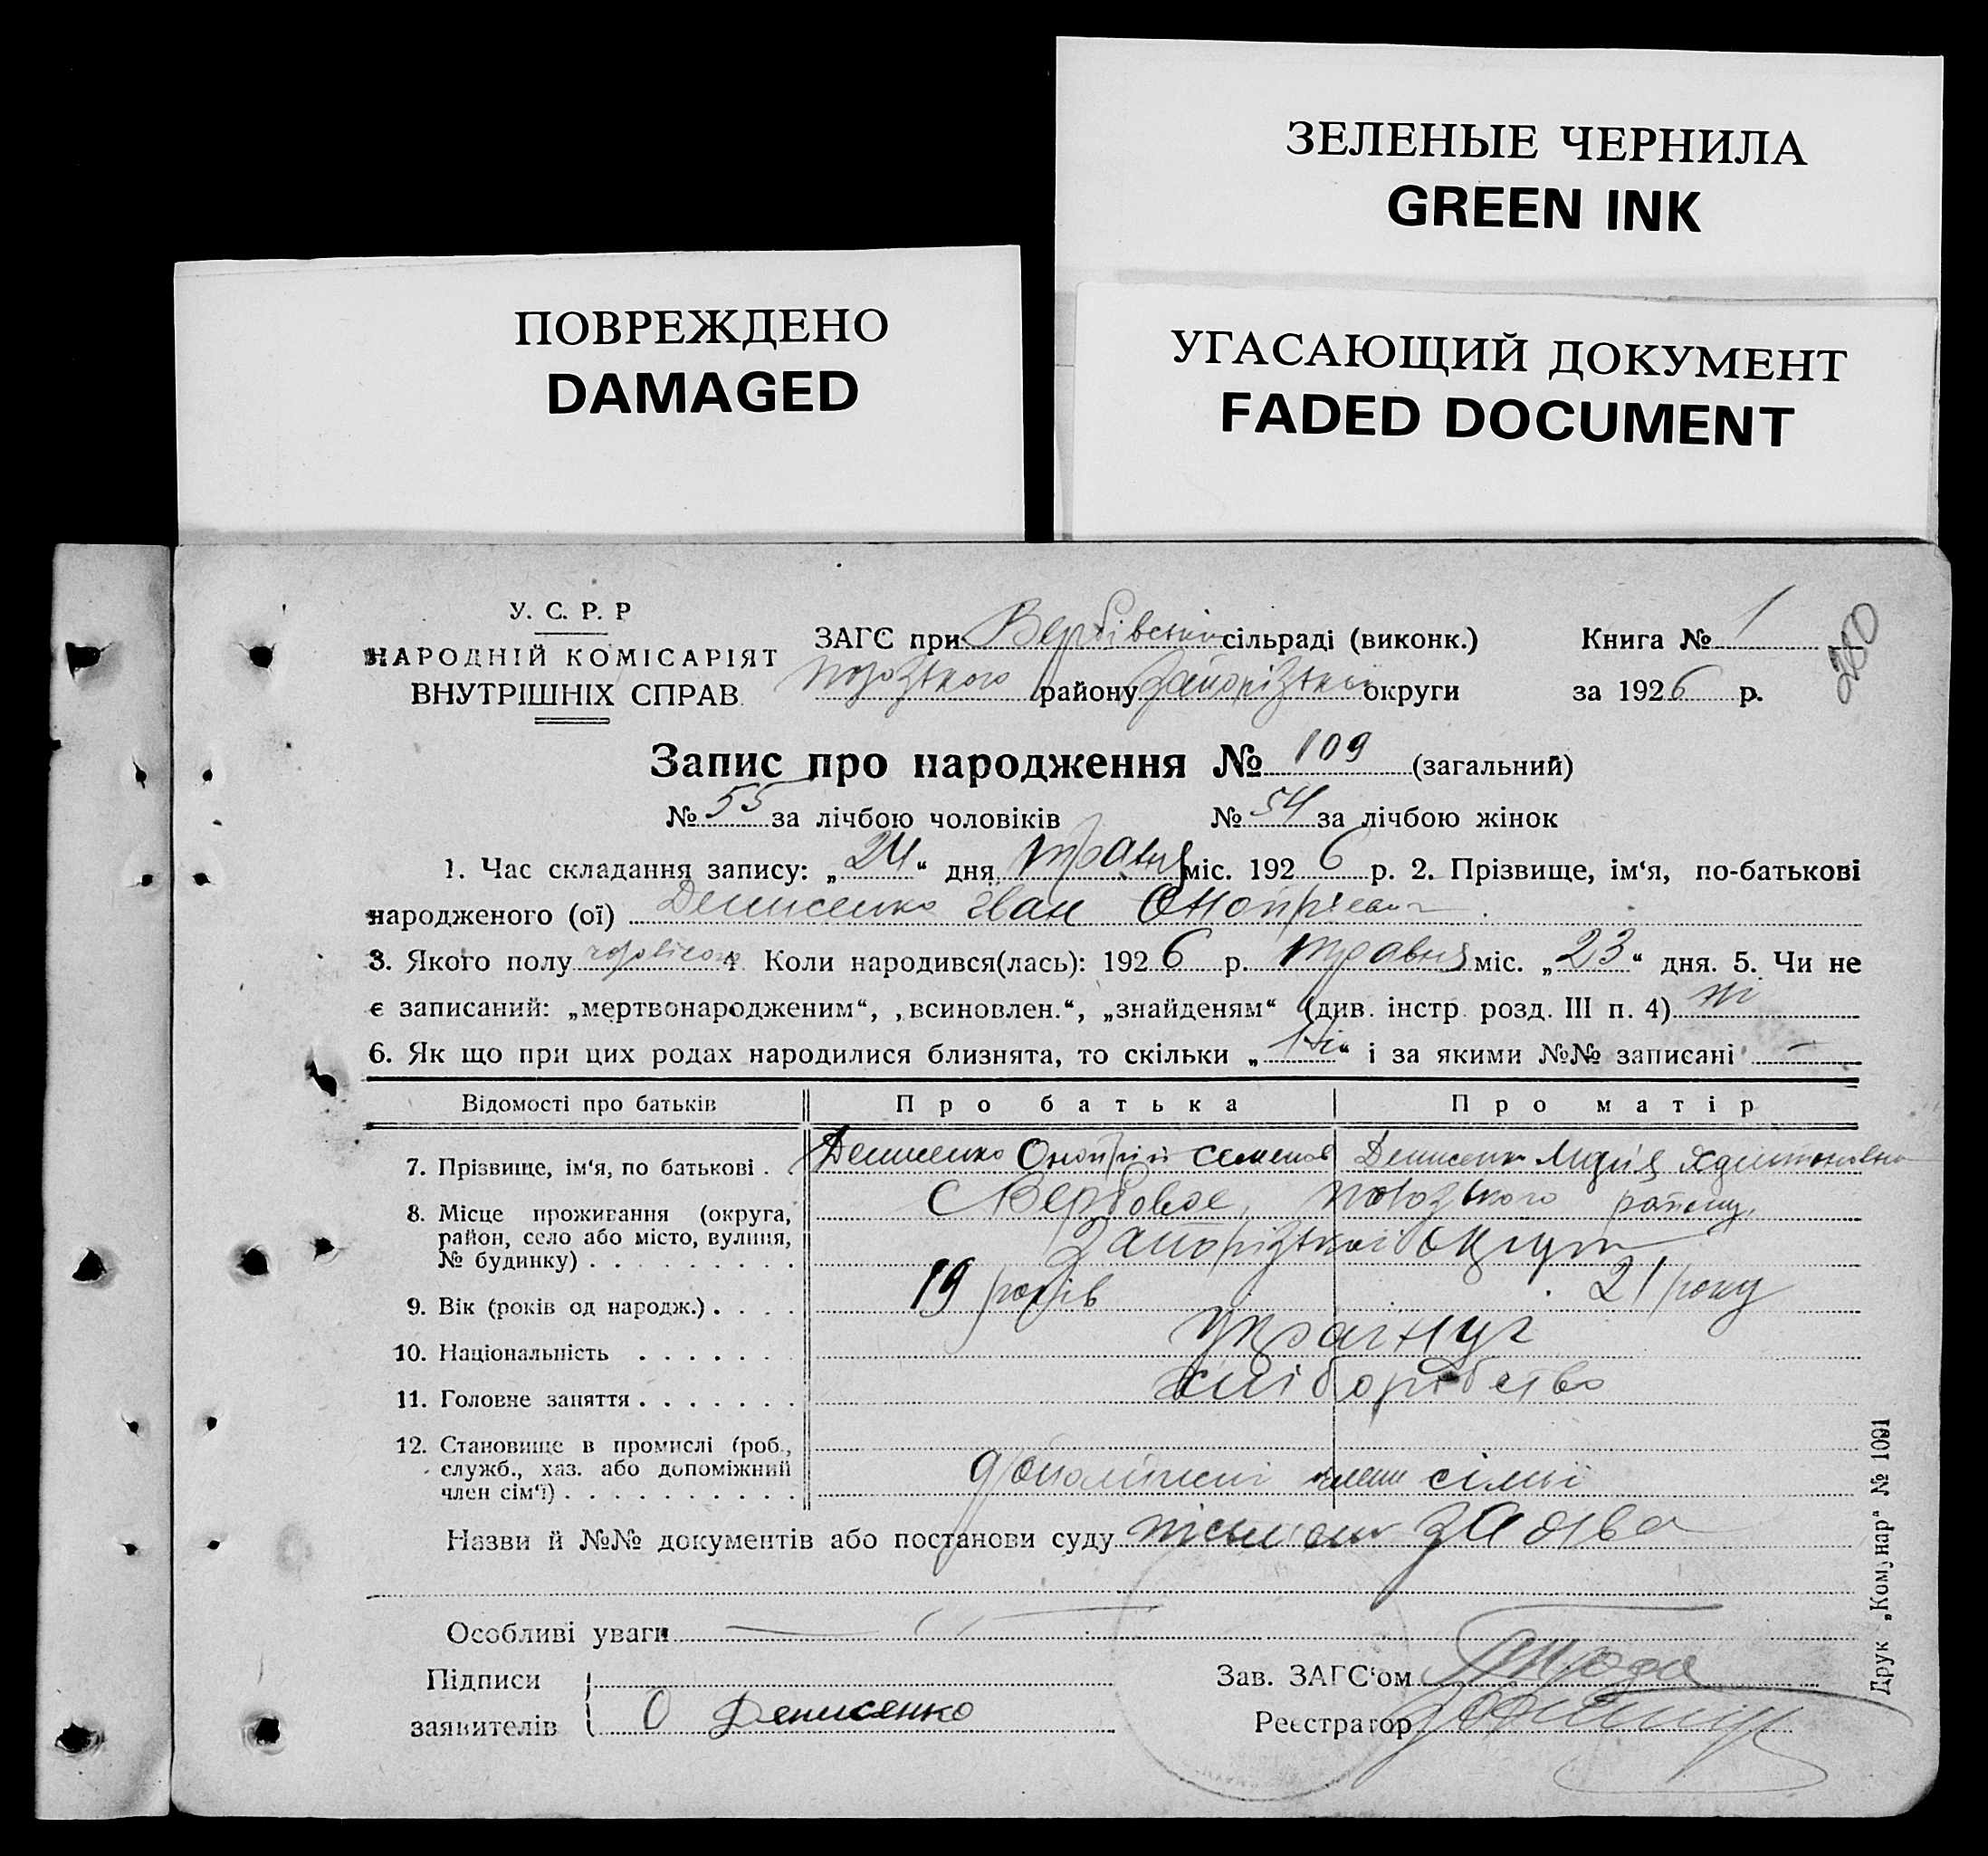 ЗЕЛЕНЫЕ ЧЕРНИЛА
GREEN INK
ПОВРЕЖДЕНО
DAMAGED
УГАСАЮЩИЙ ДОКУМЕНТ
FADED DOCUMENT
У. С. Р. Р
НАРОДНІЙ КОМІСАРІЯТ
ВНУТРІШНІХ СПРАВ
ЗАГС при Вербівській сільраді (виконк.) Книга № 1
району Запорізької округи за 1926 р.
Запис про народження № 109 (загальний)
№ 55 за лічбою чоловіків № 54 за лічбою жінок
1. Час складання запису: „24“ дня травня міс. 1926 р. 2. Прізвище, ім‘я, по-батькові
народженого (ої) Денисенко Іван Онопрієвич
3. Якого полу 4. Коли народився(лась): 1926 р. травня міс. „23“ дня. 5. Чи не
є записаний: „мертвонародженим“, „всиновлен.“, „знайденям“ (див. інстр. розд. III п. 4) ні
6. Як що при цих родах народилися близнята, то скільки „ “ і за якими №№ записані —
Відомості про батьків Про батька Про матір
7. Прізвище, ім‘я, по батькові . Денисенко Онопрій Семенов Денисенко Лидія
8. Місце проживання (округа,
район, село або місто, вулиця,
№ будинку) . . . . . . . . .
С Вербовое, району,
Запорізької округи
9. Вік (років од народж.) . . . . 19 років 21 року
10. Національність . . . . . . . українці
11. Головне заняття . . . . . . . хліборобство
12. Становище в промислі (роб.,
служб., хаз. або допоміжний
член сім‘ї) . . . . . . . . . .
допоміжні члени сімьї
Назви й №№ документів або постанови суду заява
Особливі уваги —
Підписи
заявителів О Денисенко
Зав. ЗАГС‘ом
Реєстратор
Друк „Комунар“ № 1091